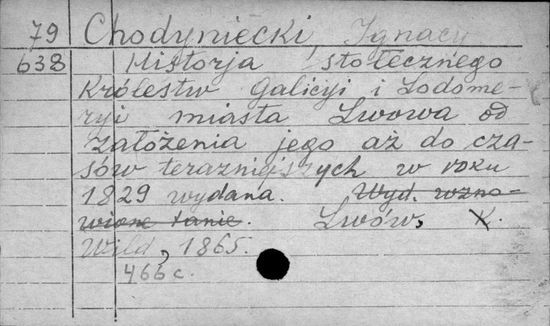 79 Chodyniecki, Ignacy
638 Historja stołecznego
Królestw Galicyi i Lodome-
ryi miasta Lwowa od
założenia jego aż do cza-
sów terazniejszych w roku
1829 wydana. Wyd. wzno-
wione tanie. Lwów, K.
Wild, 1865.
466 c.